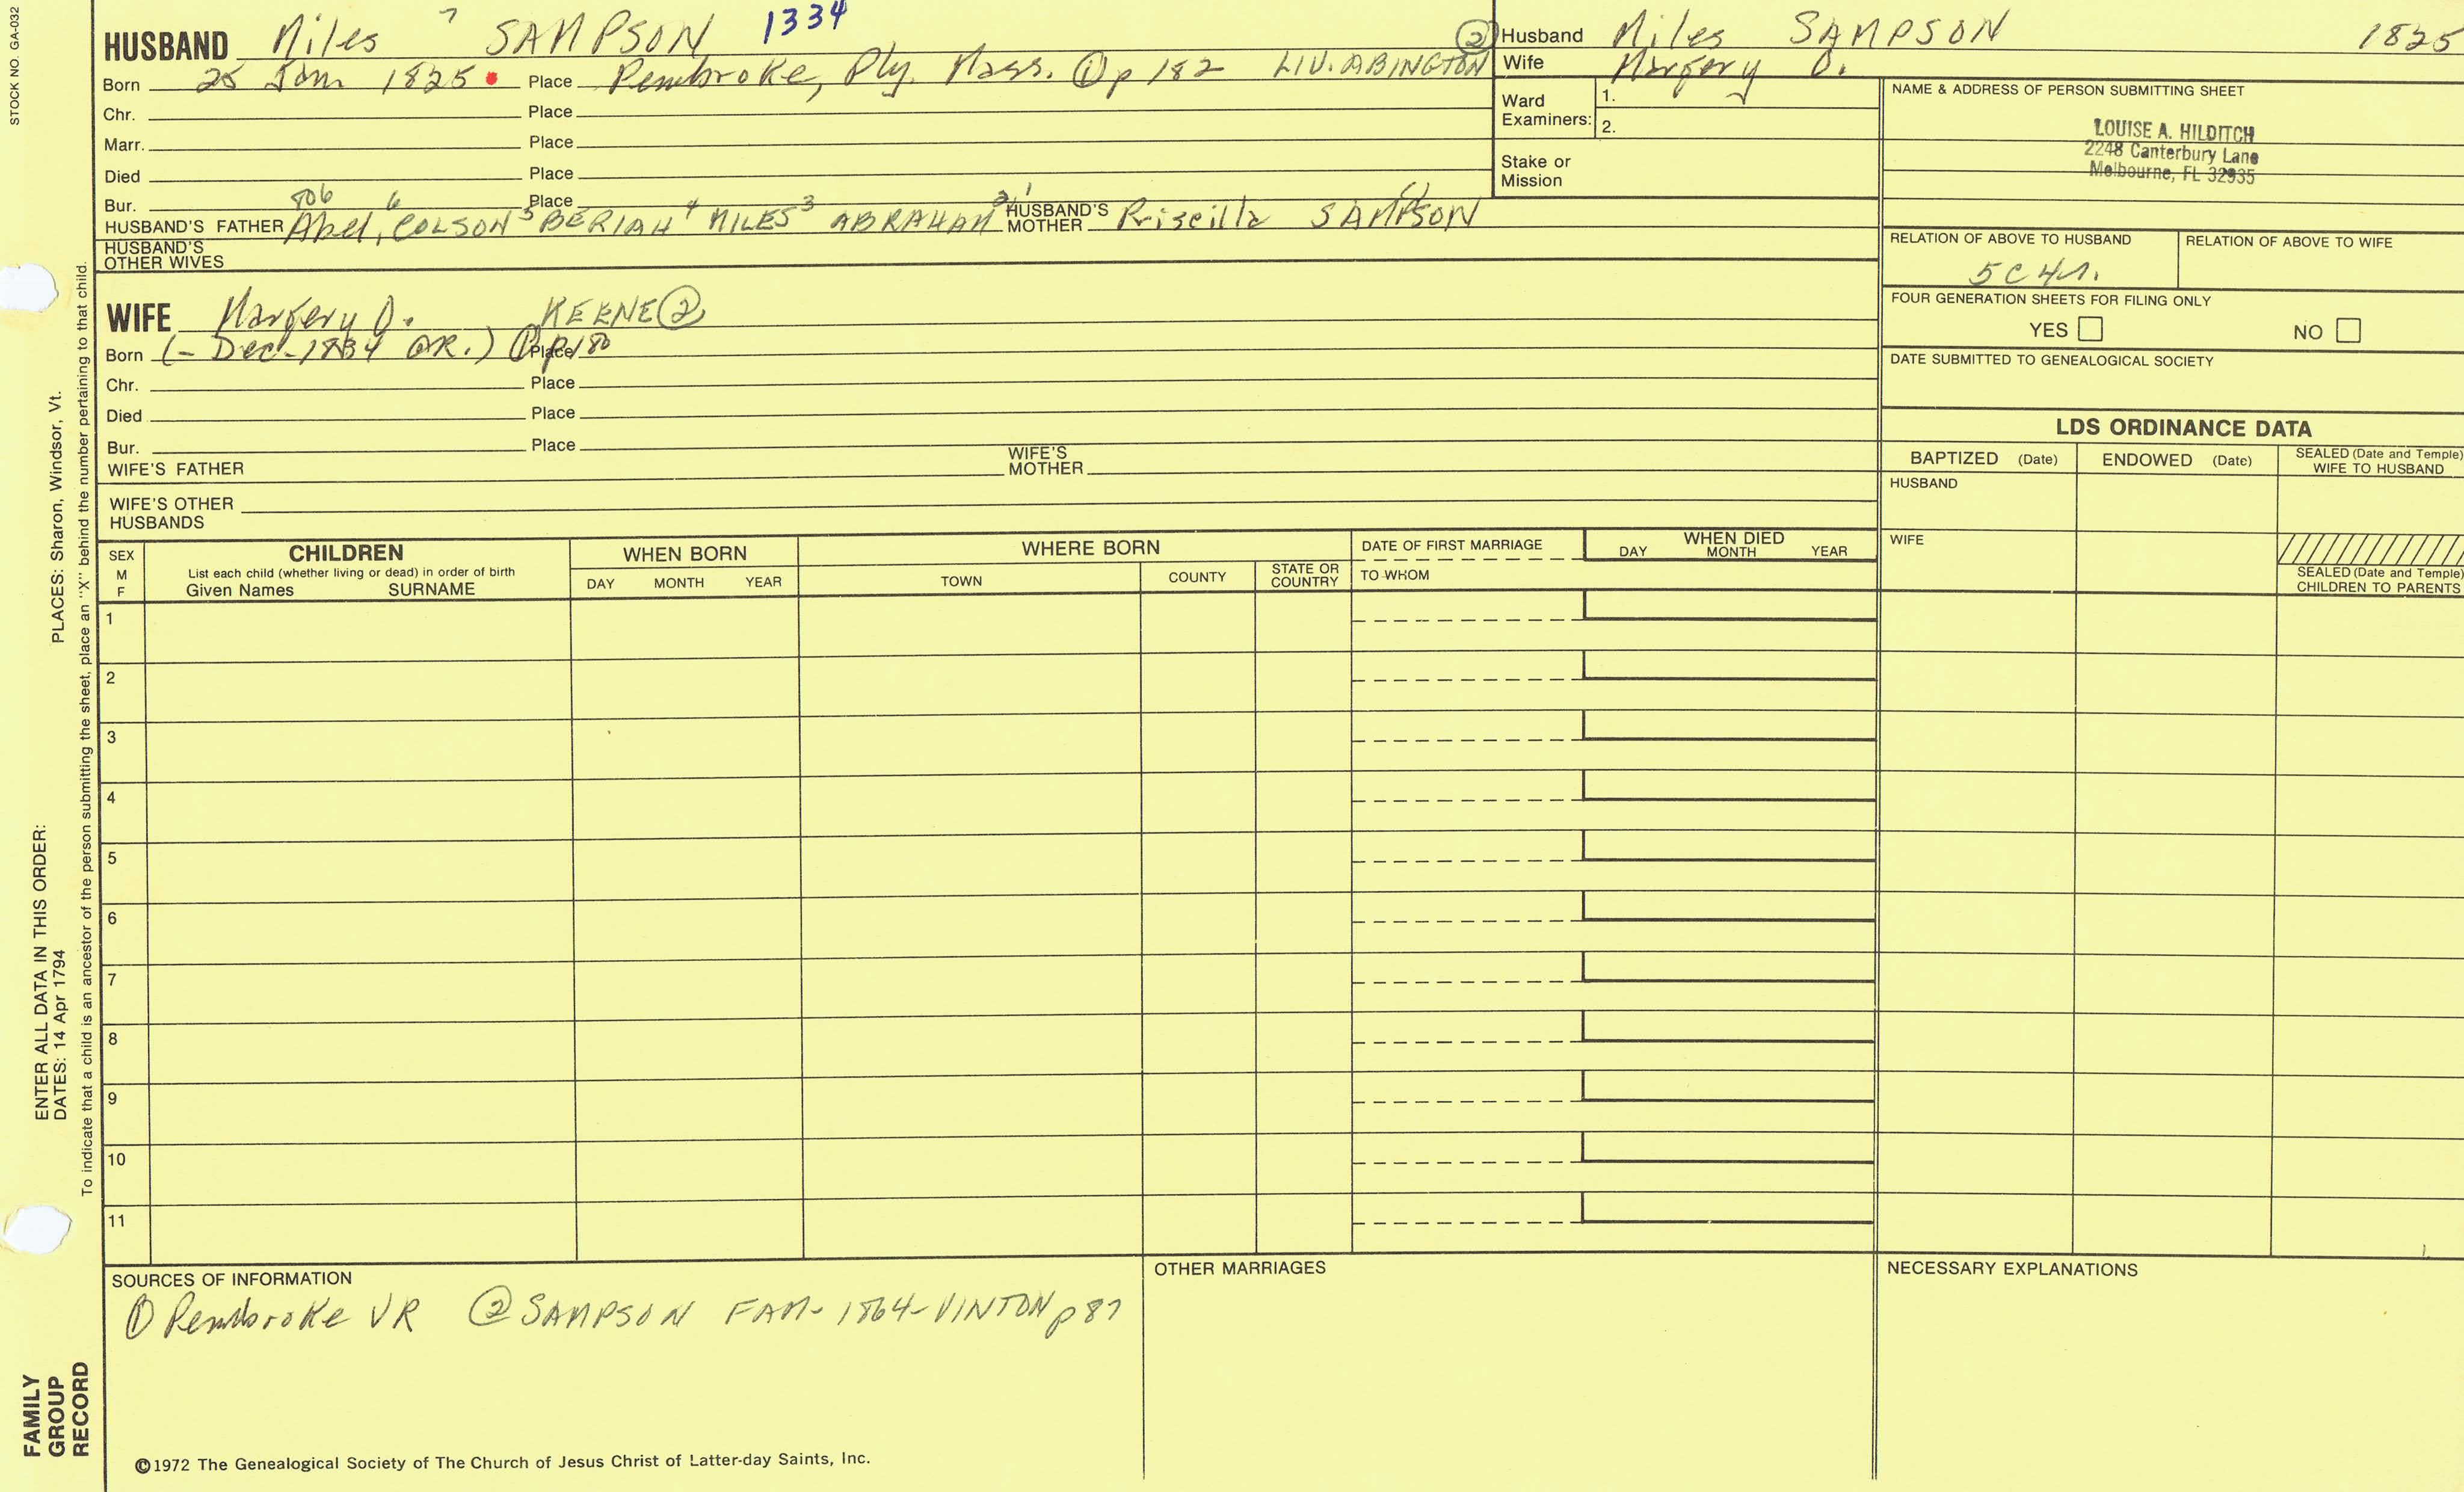 STOCK NO. GA-032
HUSBAND Miles 7 SAMPSON 1334
Born 25 Jan 1825 Place Pembroke, Ply. Mass. ① p 182 LIV. ABINGTON ②
Chr. Place
Marr. Place
Died Place
Bur. Place
HUSBAND'S FATHER 806 Abel 6, COLSON 5 BERIAH 4 MILES 3 ABRAHAM 2 1 HUSBAND'S MOTHER Priscilla SAMPSON
HUSBAND'S OTHER WIVES
WIFE Margery D. KEENE ②
Born (- Dec - 1834 GR.) ① p 180 Place
Chr. Place
Died Place
Bur. Place
WIFE'S FATHER WIFE'S MOTHER
WIFE'S OTHER HUSBANDS
Husband Miles SAMPSON 1825
Wife Margery D.
Ward Examiners: 1.
2.
Stake or Mission
NAME & ADDRESS OF PERSON SUBMITTING SHEET
LOUISE A. HILDITCH
2248 Canterbury Lane
Melbourne, FL 32935
RELATION OF ABOVE TO HUSBAND RELATION OF ABOVE TO WIFE
5C4r.
FOUR GENERATION SHEETS FOR FILING ONLY
YES NO
DATE SUBMITTED TO GENEALOGICAL SOCIETY
LDS ORDINANCE DATA
BAPTIZED (Date) ENDOWED (Date) SEALED (Date and Temple) WIFE TO HUSBAND
HUSBAND
WIFE
SEALED (Date and Temple) CHILDREN TO PARENTS
SEX M F
CHILDREN
List each child (whether living or dead) in order of birth
Given Names SURNAME
WHEN BORN
DAY MONTH YEAR
WHERE BORN
TOWN COUNTY STATE OR COUNTRY
DATE OF FIRST MARRIAGE
TO WHOM
WHEN DIED
DAY MONTH YEAR
1
2
3
4
5
6
7
8
9
10
11
SOURCES OF INFORMATION
① Pembroke VR ② SAMPSON FAM- 1864- VINTON p 87
OTHER MARRIAGES
NECESSARY EXPLANATIONS
©1972 The Genealogical Society of The Church of Jesus Christ of Latter-day Saints, Inc.
ENTER ALL DATA IN THIS ORDER:
DATES: 14 Apr 1794
PLACES: Sharon, Windsor, Vt.
To indicate that a child is an ancestor of the person submitting the sheet, place an "X" behind the number pertaining to that child.
FAMILY
GROUP
RECORD